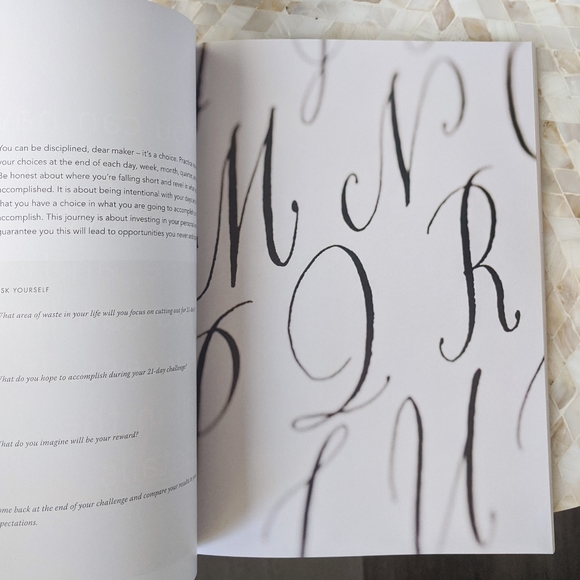 You can be disciplined, dear maker – it's a choice. Practice
your choices at the end of each day, week, month, quarter,
Be honest about where you're falling short and revel in
accomplished. It is about being intentional with your
that you have a choice in what you are going to accomplish
accomplish. This journey is about investing in your personal
guarantee you this will lead to opportunities you never
SK YOURSELF
What area of waste in your life will you focus on cutting out for 21
What do you hope to accomplish during your 21-day challenge?
What do you imagine will be your reward?
ome back at the end of your challenge and compare your results to
pectations.
M N
Q R
U